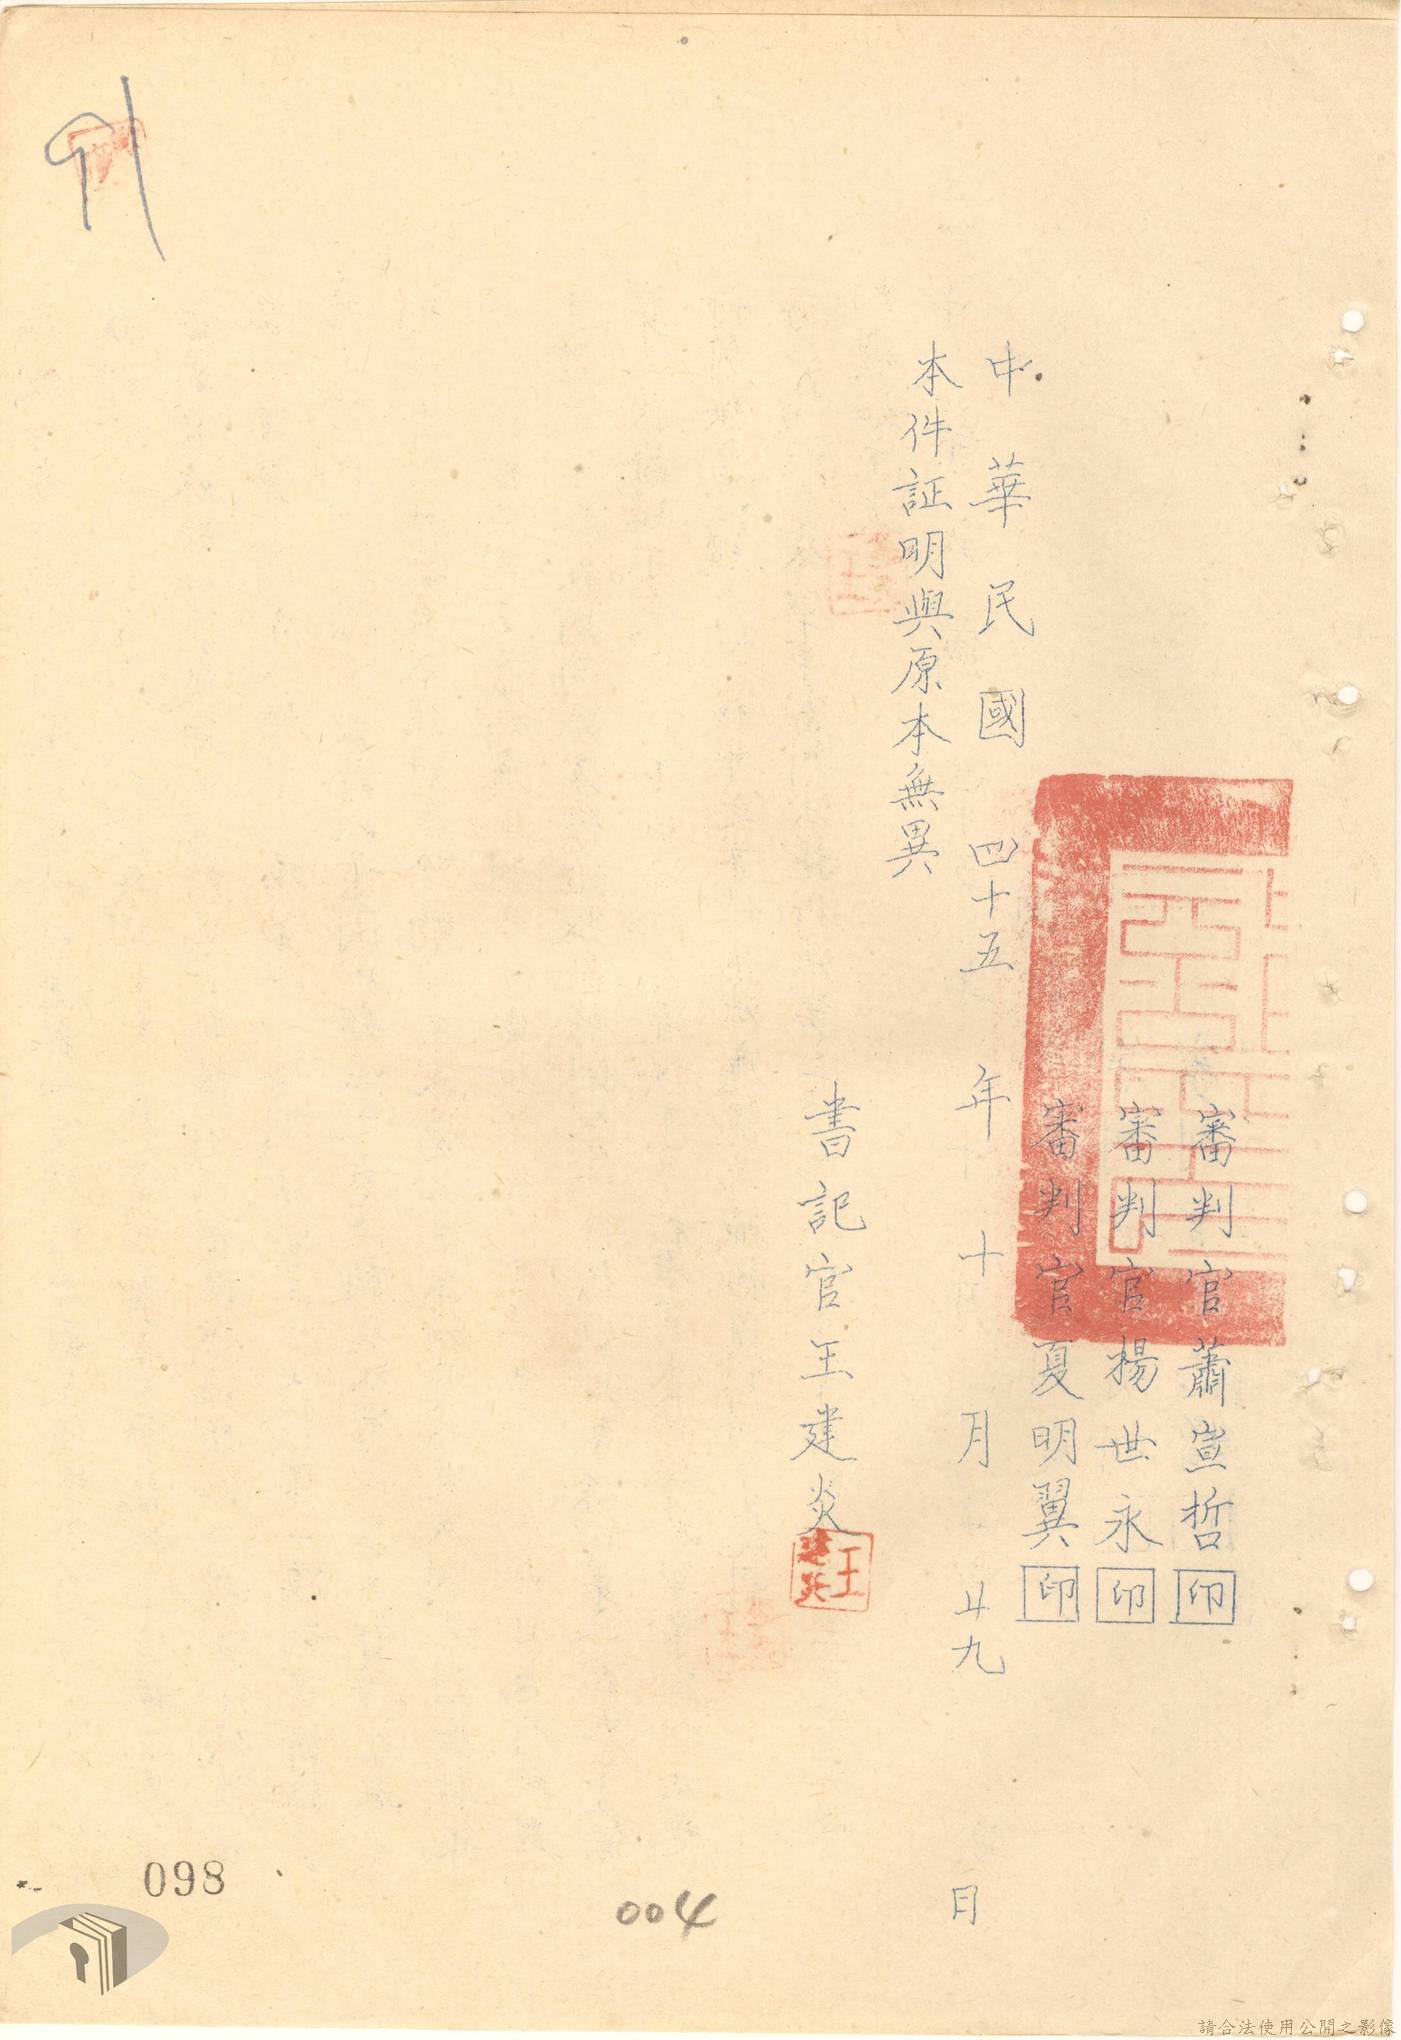 審判官蕭宣哲印
審判官楊世永印
審判官夏明翼印
中華民國四十五年十月廿九日
本件証明與原本無異
書記官王建炎
王建炎
098
004
請合法使用公開之影像